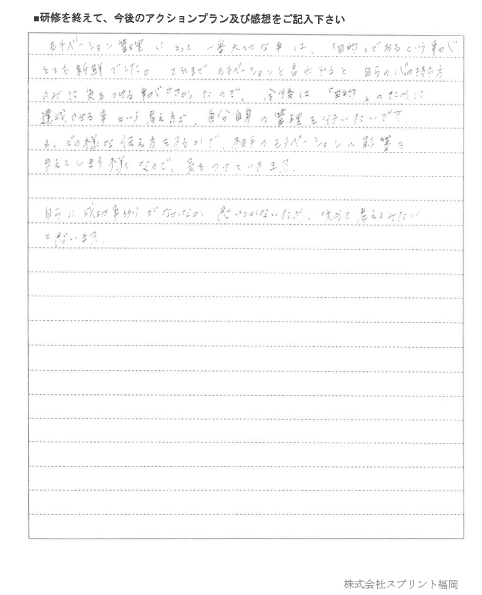 ■研修を終えて、今後のアクションプラン及び感想をご記入下さい
モチベーション管理にとって一番大切な事は、「目的」であるという事が
とても新鮮でした。これまでモチベーションと言われると自らの心の持ち方
だけに気をつける事が多かったので、今後は「目的」のために
達成させる事という考え方で、自分自身の管理も行いたいです。
又、どの様な伝え方をするかで、相手のモチベーションへ影響を
与えてしまう様なので、気をつけていきます。
自らの成功事例がなかなか思いつかないため、改めて考えてみたい
と思います。
株式会社スプリント福岡